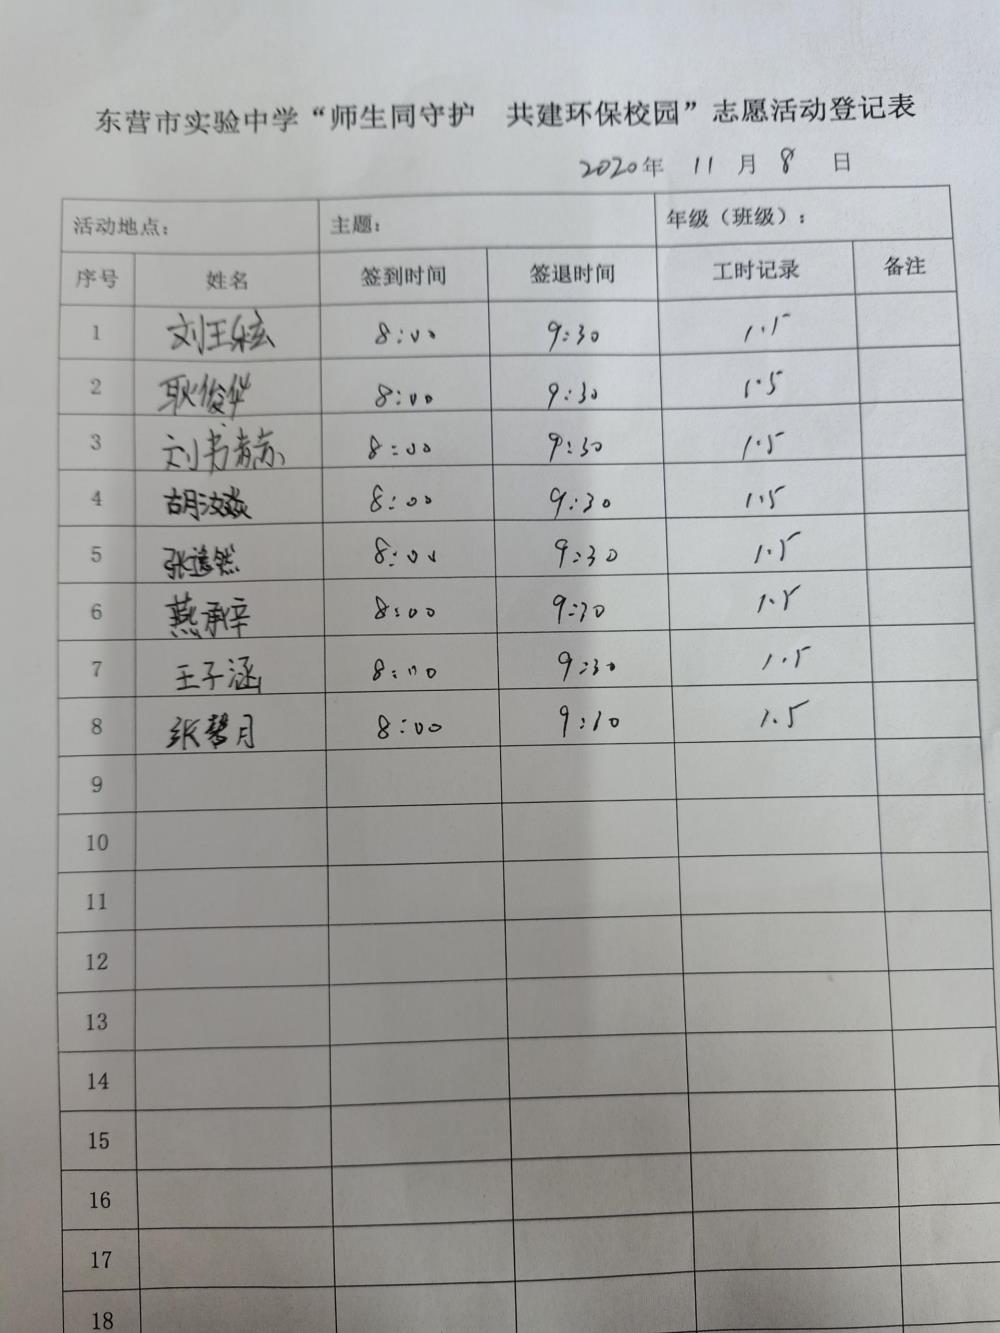 东营市实验中学“师生同守护 共建环保校园”志愿活动登记表
2020年 11 月 8 日
活动地点： 主题： 年级（班级）：
序号 姓名 签到时间 签退时间 工时记录 备注
1 刘王 8:00 9:30 1.5
2 耿俊华 8:00 9:30 1.5
3 刘书 8:00 9:30 1.5
4 胡汶 8:00 9:30 1.5
5 张 然 8:00 9:30 1.5
6 燕承辛 8:00 9:30 1.5
7 王子涵 8:00 9:30 1.5
8 张馨月 8:00 9:30 1.5
9
10
11
12
13
14
15
16
17
18